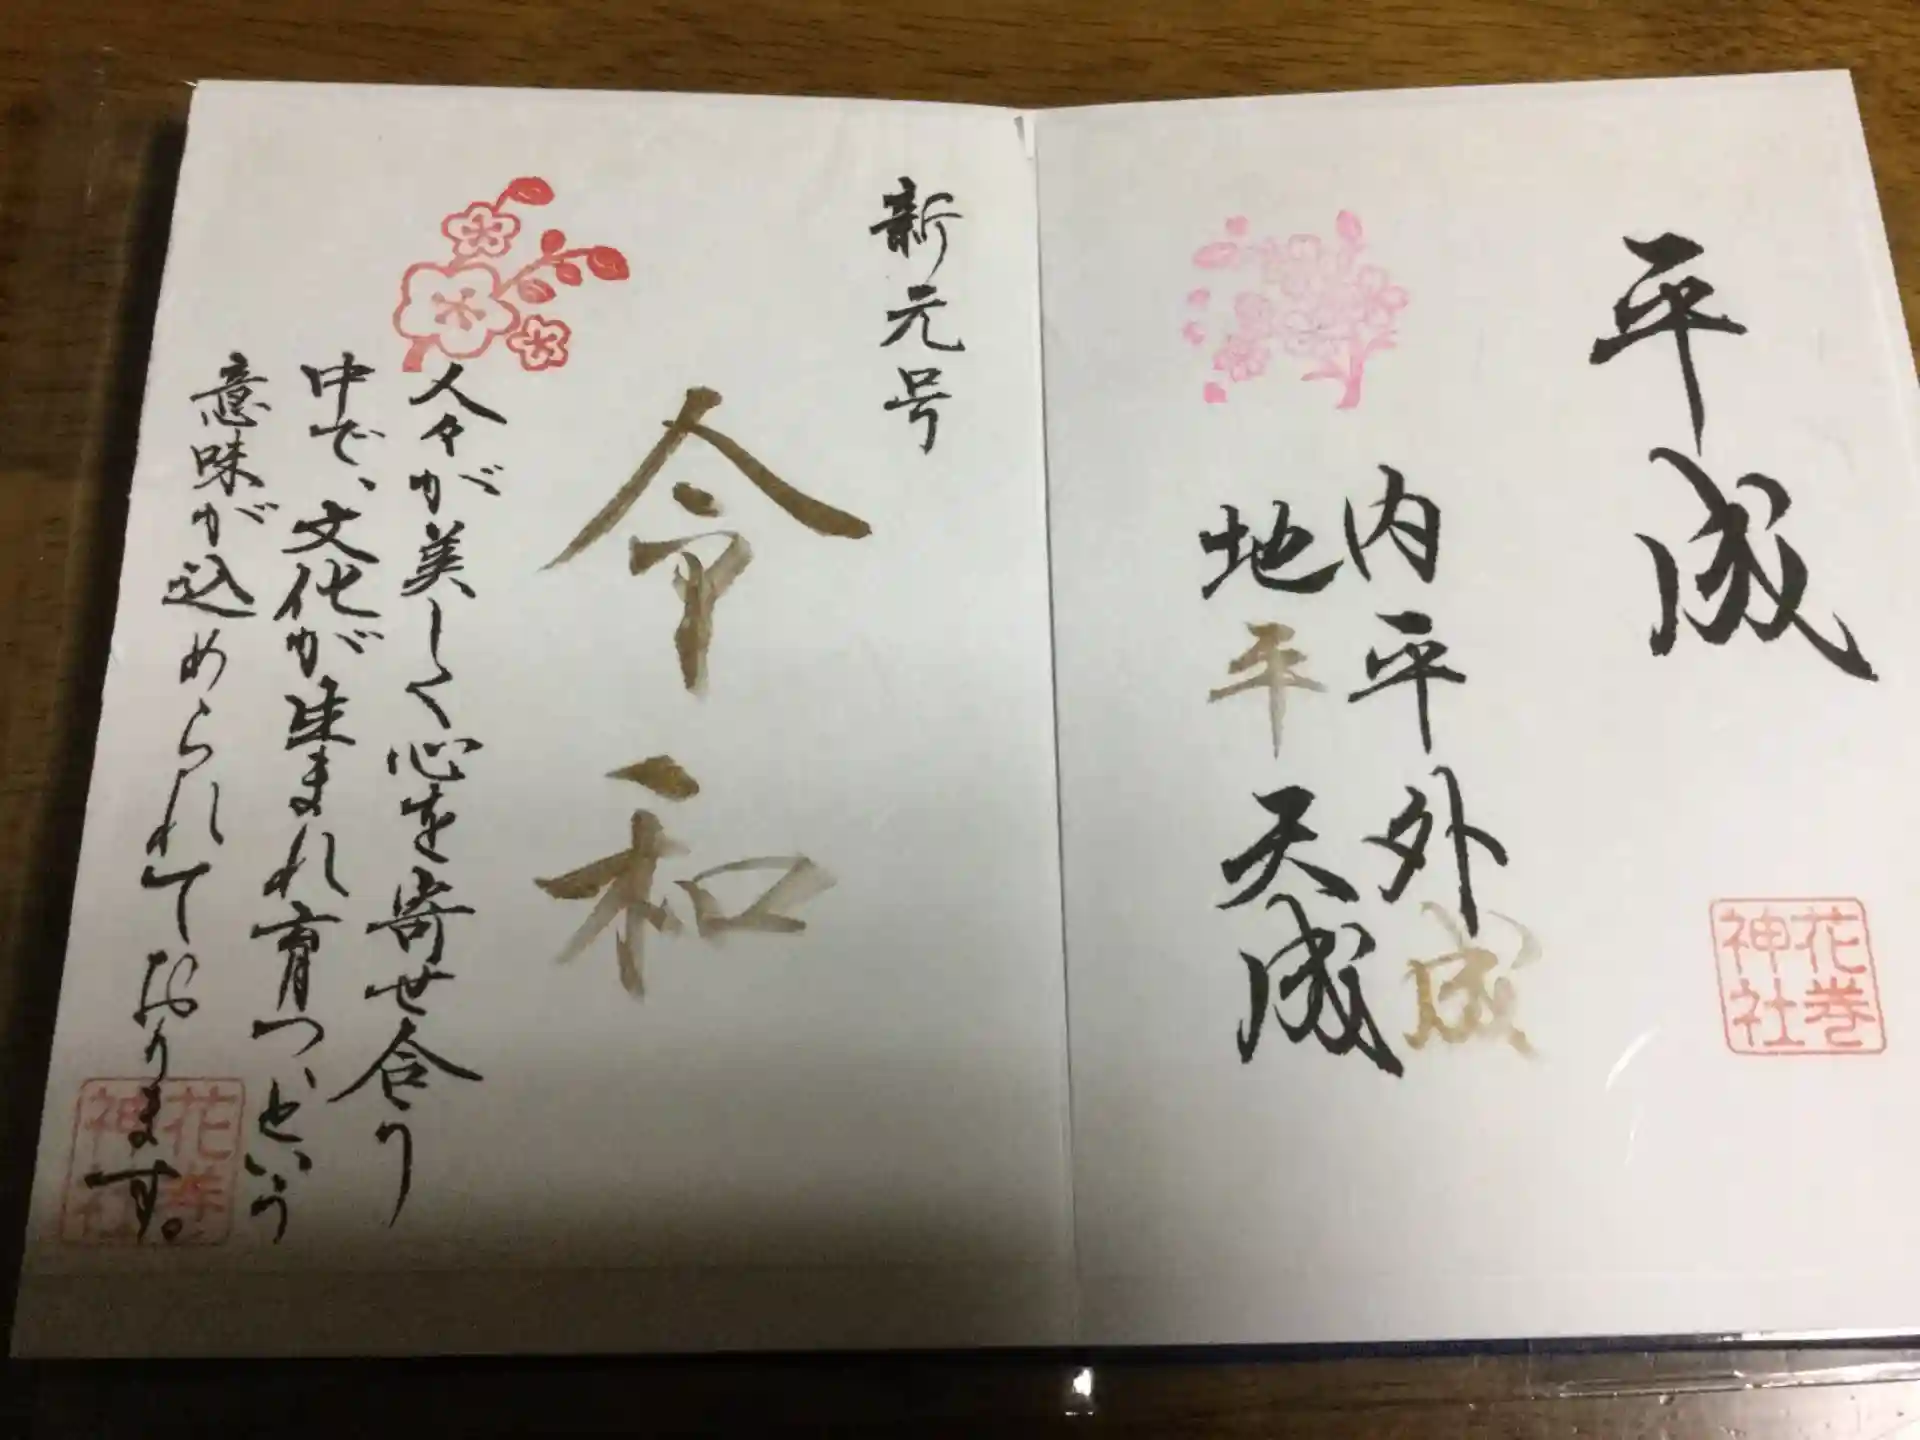 平成
内平外成
地平天成
花巻
神社
新元号
令和
人々が美しく心を寄せ合う
中で、文化が生まれ育つ、という
意味が込められております。
花巻
神社